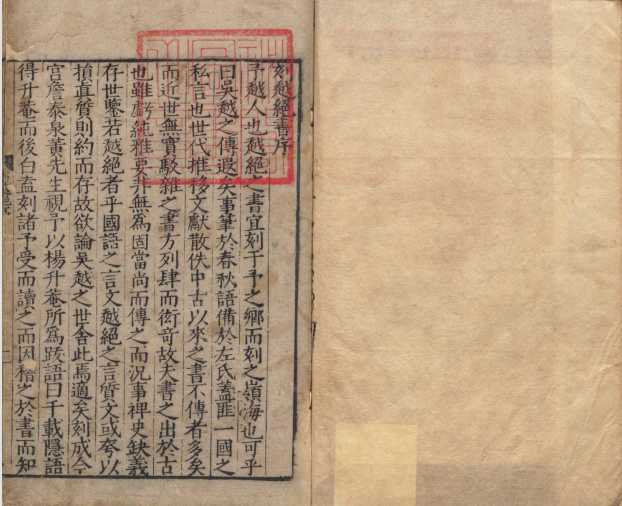 刻越絕書序
予越人也越絕之書宜刻于予之鄉而刻之嶺海也可乎
曰吳越之傳遐矣事筆於春秋語備於左氏蓋匪一國之
私言也世代推移文獻散佚中古以來之書不傳者多矣
而近世無實駁雜之書方列肆而衒奇故夫書之出於古
也雖虧純雅要非無為固當尚而傳之而況事裨史缺義
存世鑒若越絕者乎國語之言文越絕之言質文或夸以
損直質則約而存故欲論吳越之世舍此焉適矣刻成今
宮詹泰泉黃先生視予以楊升菴所為跋語曰千載隱語
得升菴而後白盍刻諸予受而讀之而因稽之於書而知